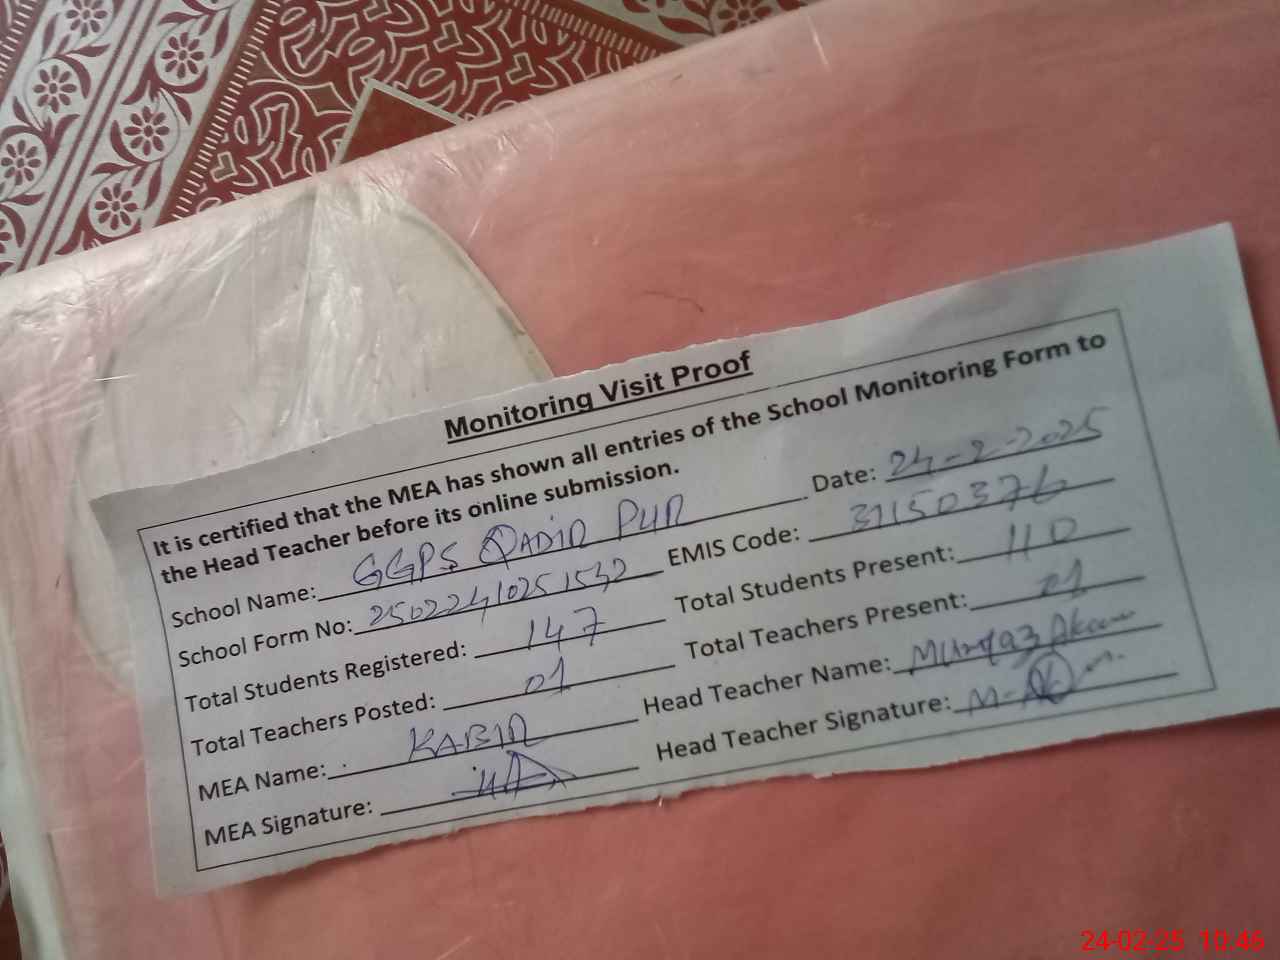 Monitoring Visit Proof
It is certified that the MEA has shown all entries of the School Monitoring Form to
the Head Teacher before its online submission.
School Name: GGPS QADIR PUR Date: 24-2-2025
School Form No: 250224102515 EMIS Code: 31150376
Total Students Registered: 147 Total Students Present: 110
Total Teachers Posted: 01 Total Teachers Present: 01
MEA Name: KABIR Head Teacher Name: Mumtaz Akram
MEA Signature: Head Teacher Signature:
24-02-25 10:46